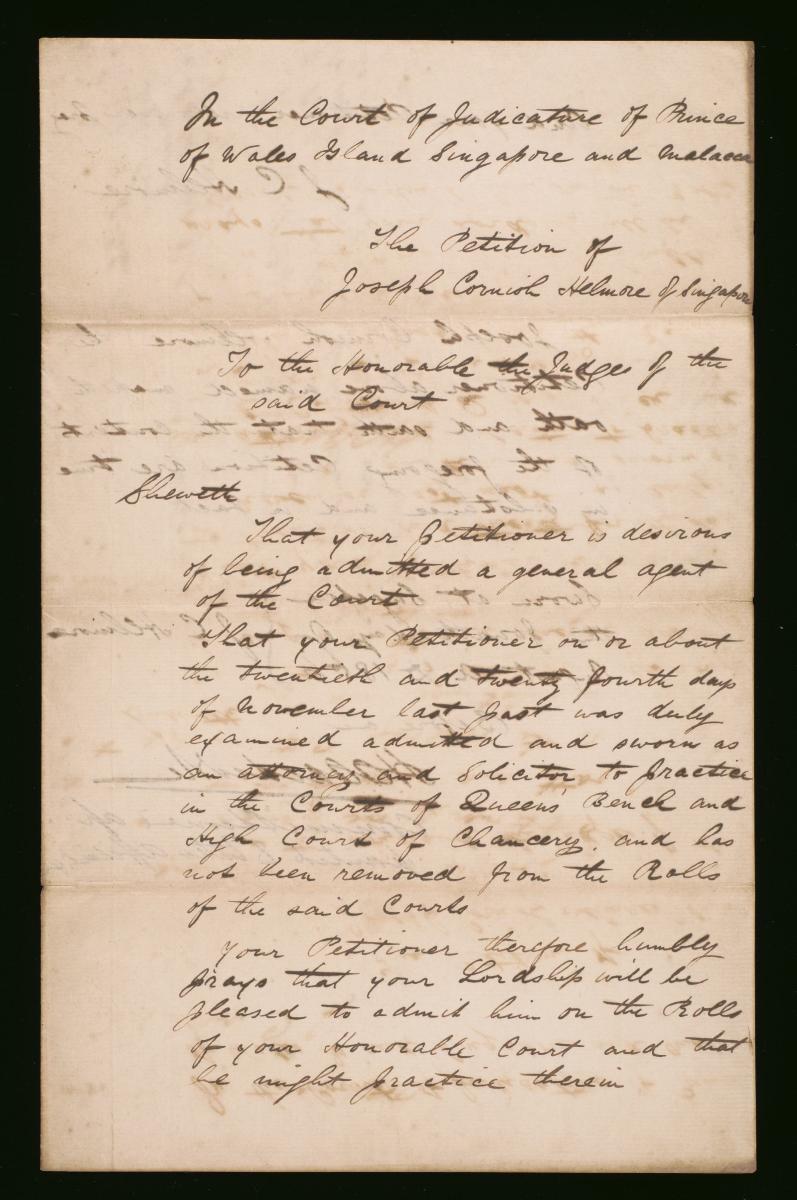 In the Court of Judicature of Prince
of Wales Island Singapore and Malacca
The Petition of
Joseph Cornish Helmore of Singapore
To the Honorable the Judges of the
said Court
Sheweth
That your Petitioner is desirous
of being admitted a general agent
of the Court
That your Petitioner on or about
the twentieth and twenty fourth days
of November last past was duly
examined admitted and sworn as
an attorney and Solicitor to practice
in the Courts of Queens' Bench and
High Court of Chancery. and has
not been removed from the Rolls
of the said Courts
Your Petitioner therefore humbly
prays that your Lordship will be
pleased to admit him on the Rolls
of your Honorable Court and that
he might practice therein